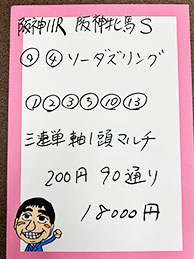 阪神11R 阪神牝馬S
◎ ④ ソーダズリング
① ② ③ ⑤ ⑩ ⑬
三連単 軸1頭マルチ
200円 90通り
18000円